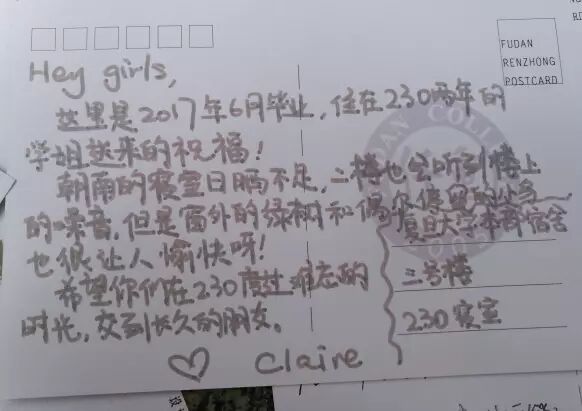 FUDAN
RENZHONG
POSTCARD
Hey girls,
这里是2017年6月毕业,住在230两年的
学姐送来的祝福!
朝南的寝室日晒不足,二楼也会听到楼上
的噪音,但是窗外的绿树和偶尔停留的小鸟
也很让人愉快呀!
希望你们在230度过难忘的
时光,交到长久的朋友。
♡ Claire
复旦大学本部宿舍
三号楼
230寝室